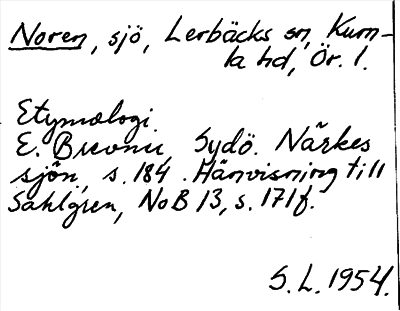 Noren, sjö, Lerbäcks sn, Kum-
la hd, Ör. l.
Etymologi.
E. Brevner, Sydö. Närkes
sjön., s. 184. Hänvisning till
Sahlgren, NoB 13, s. 171f.
S.L. 1954.